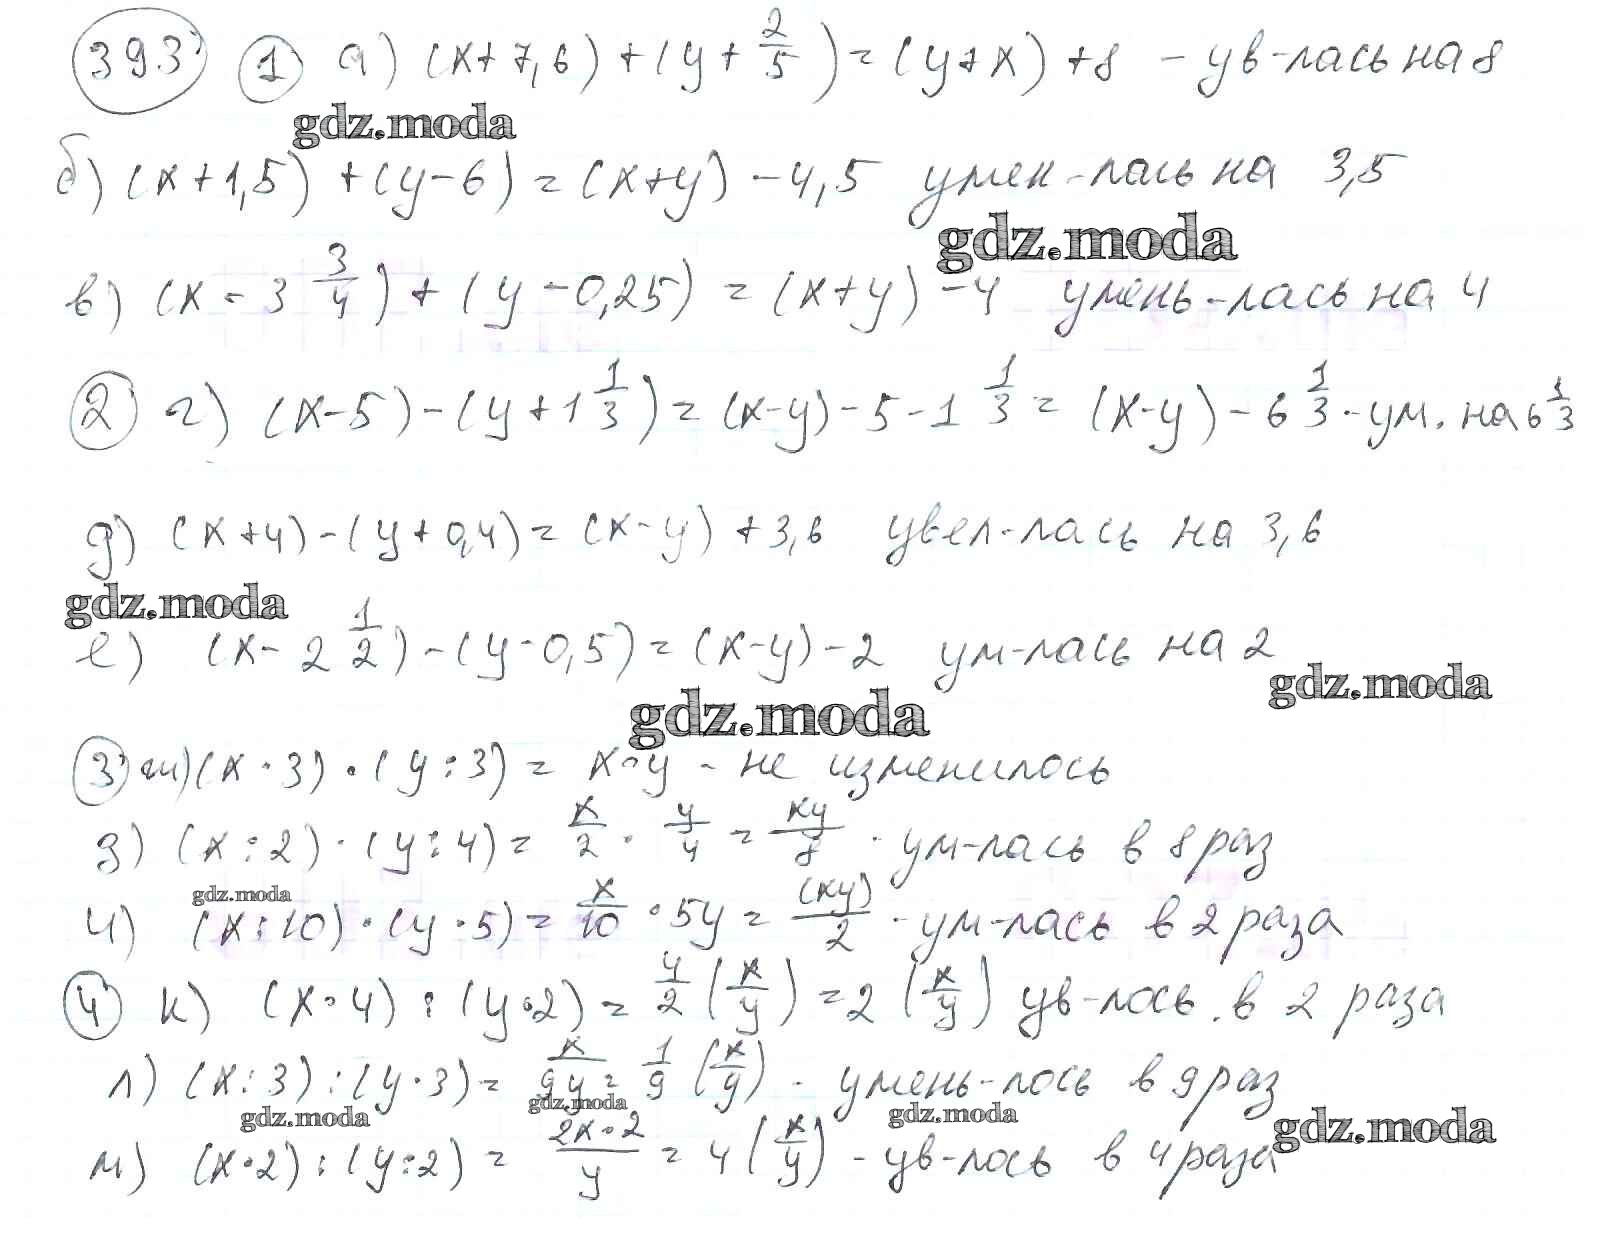 393 1 а) (x+7,6)+(y+2/5)=(y+x)+8 - ув-лась на 8
gdz.moda
б) (x+1,5)+(y-6)=(x+y)-4,5 умен-лась на 3,5
gdz.moda
в) (x-3 3/4)+(y-0,25)=(x+y)-4 умень-лась на 4
2 г) (x-5)-(y+1 1/3)=(x-y)-5-1 1/3=(x-y)-6 1/3 - ум. на 6 1/3
д) (x+4)-(y+0,4)=(x-y)+3,6 увел-лась на 3,6
gdz.moda
е) (x-2 1/2)-(y-0,5)=(x-y)-2 ум-лась на 2
gdz.moda
gdz.moda
3 ж) (x·3)·(y:3)=x·y - не изменилось
з) (x:2)·(y:4)=x/2·y/4=xy/8 - ум-лась в 8 раз
gdz.moda
и) (x:10)·(y·5)=x/10·5y=(xy)/2 - ум-лась в 2 раза
4 к) (x·4):(y·2)=4/2(x/y)=2(x/y) ув-лось. в 2 раза
л) (x:3):(y·3)=x/9y=1/9(x/y) - умень-лось в 9 раз
gdz.moda gdz.moda gdz.moda gdz.moda
м) (x·2):(y:2)=2x·2/y=4(x/y) - ув-лось в 4 раза